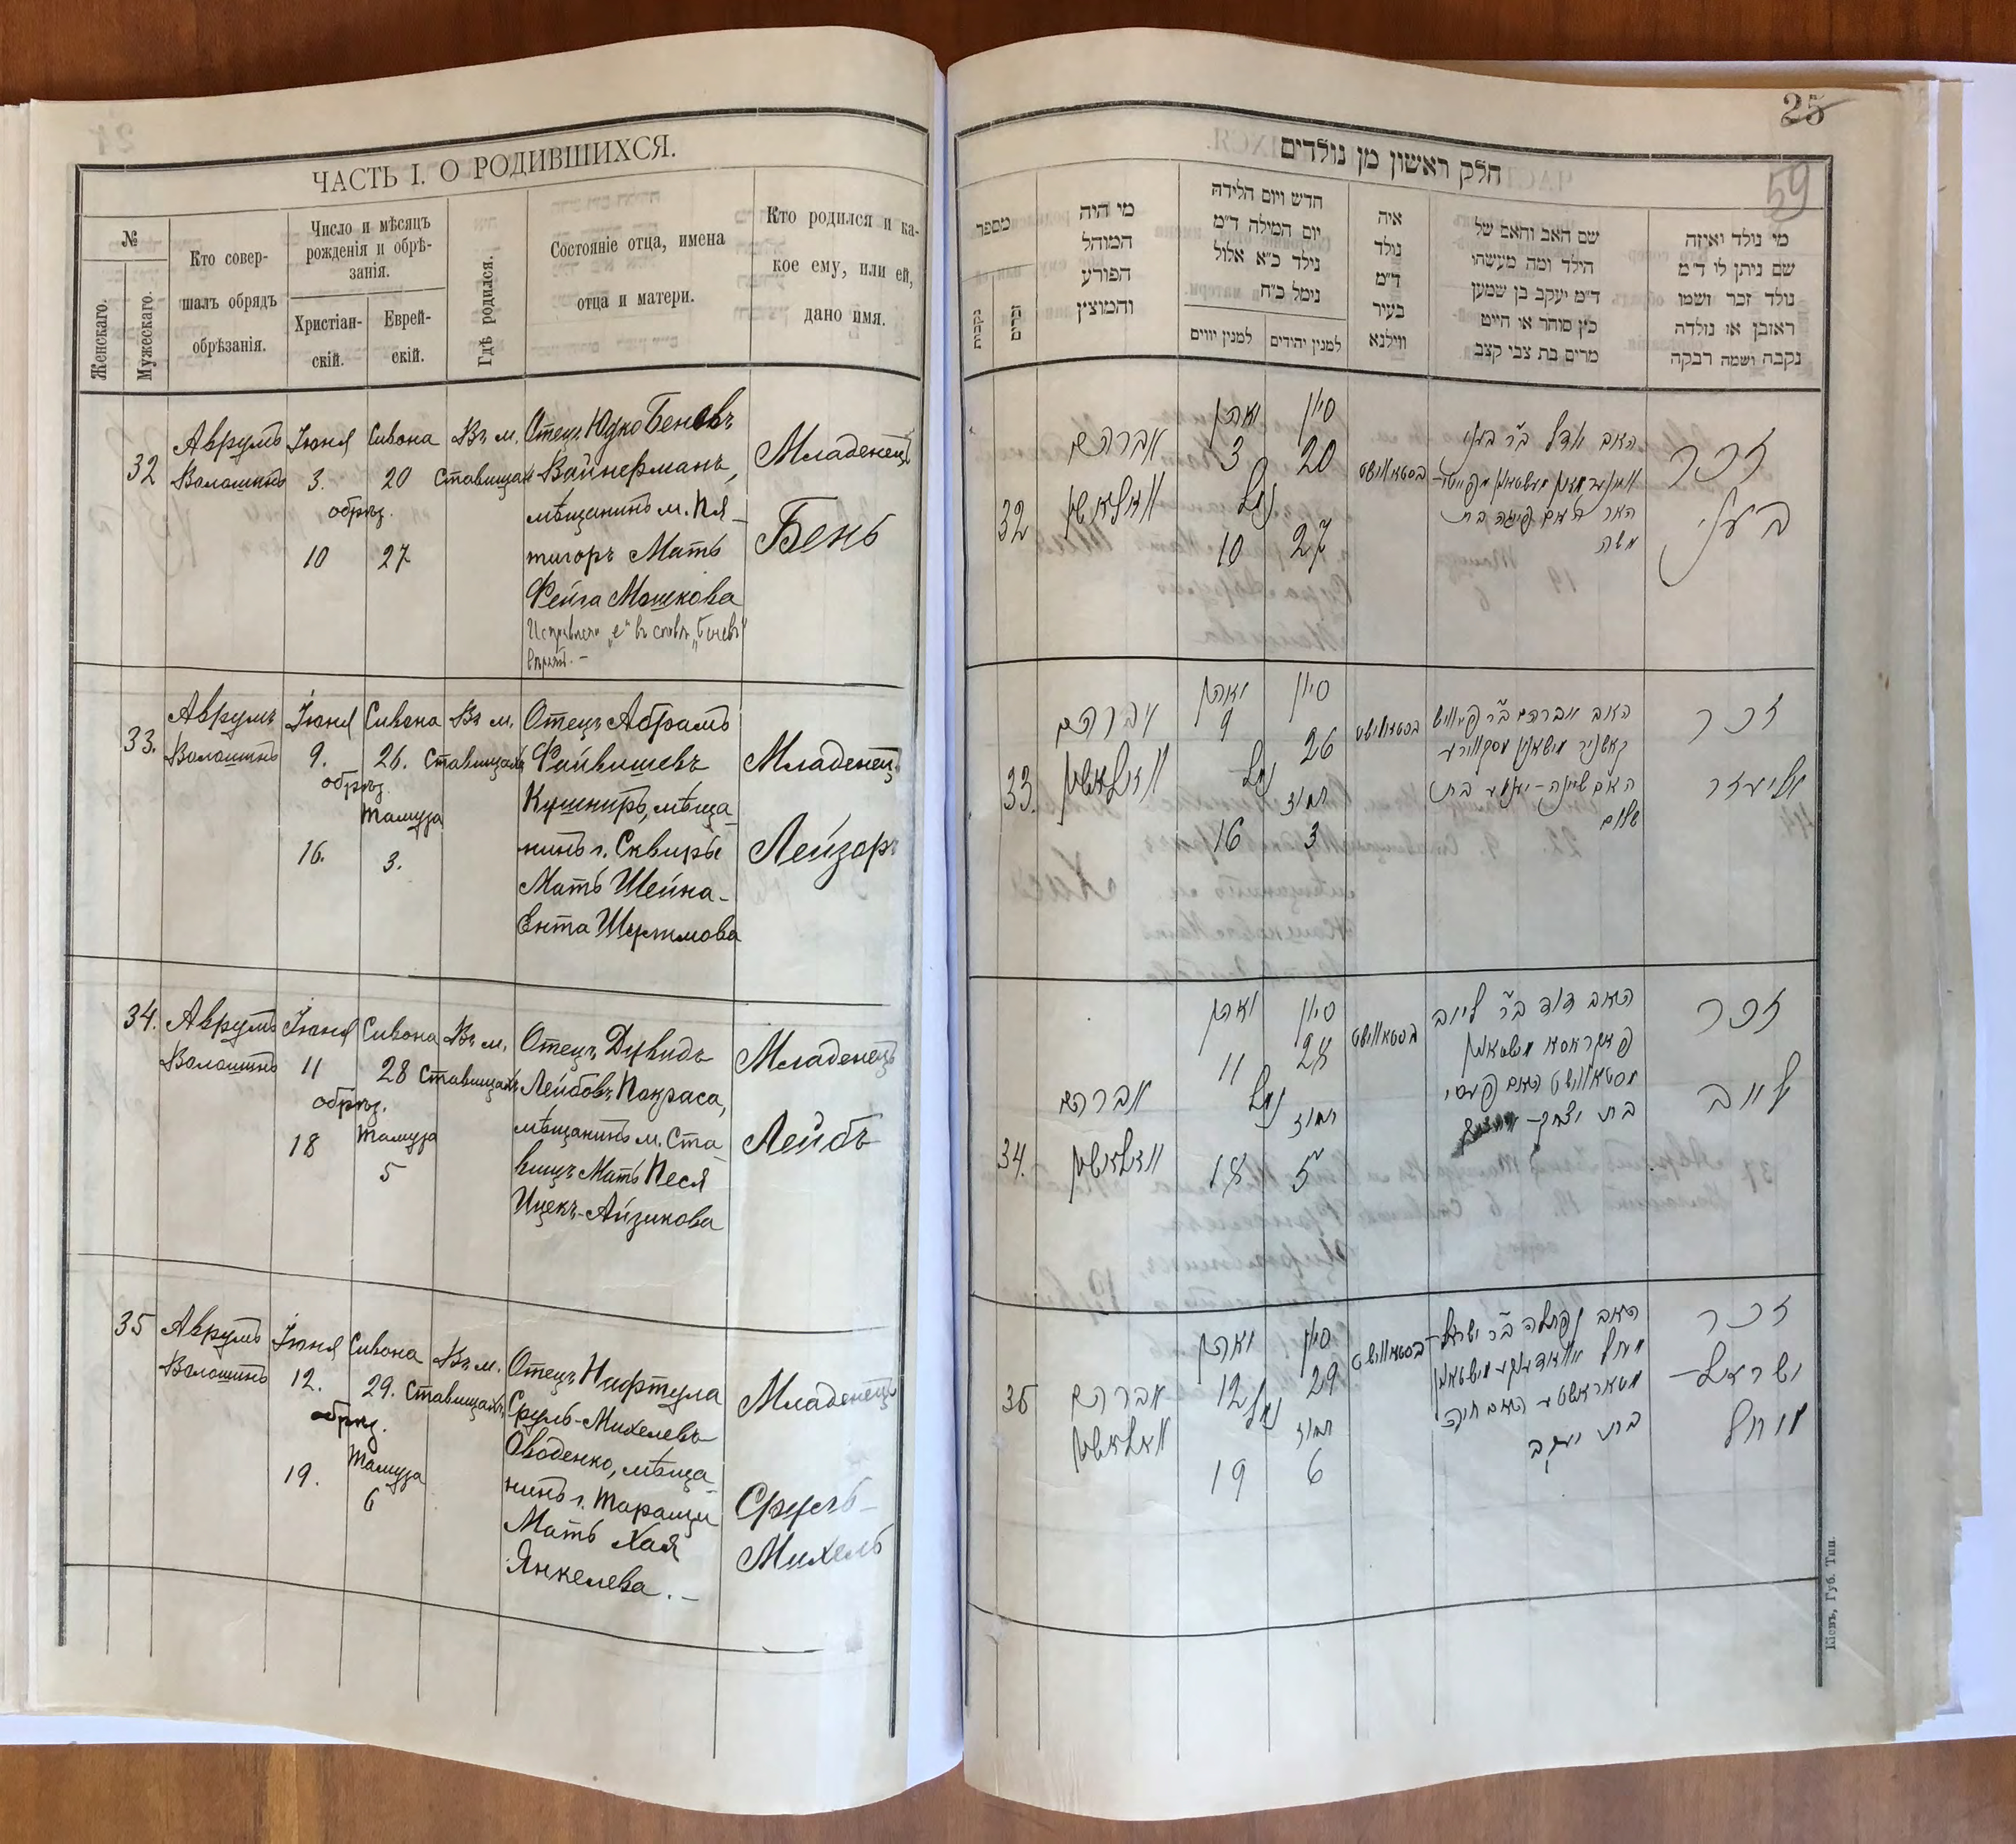 ЧАСТЬ I. О РОДИВШИХСЯ.
№
Женскаго.
Мужескаго.
Кто совер-
шалъ обрядъ
обрѣзанія.
Число и мѣсяцъ
рожденія и обрѣ-
занія.
Христіан-
скій.
Еврей-
скій.
Гдѣ родился.
Состояніе отца, имена
отца и матери.
Кто родился и ка-
кое ему, или ей,
дано имя.
32
Аврумъ
Волошинъ
Іюня
3.
обрѣз.
10
Сивона
20
27
Въ м.
Ставищахъ
Отецъ Юдко Беневъ
Вайнерманъ,
мѣщанинъ м. Пя-
тигоръ Мать
Фейга Мошкова
Исправлено „е" въ словѣ „Беневъ"
Младенецъ
Бень
33.
Аврумъ
Волошинъ
Іюня
9.
обрѣз.
16.
Сивона
26.
Тамуза
3.
Въ м.
Ставищахъ
Отецъ Абрамъ
Файвишевъ
Кушниръ, мѣща-
нинъ г. Сквиры
Мать Шейна-
Ента
Младенецъ
Лейзоръ
34.
Аврумъ
Волошинъ
Іюня
11
обрѣз.
18
Сивона
28
Тамуза
5
Въ м.
Ставищахъ
Отецъ Дувидъ
Лейбовъ Покраса,
мѣщанинъ м. Ста-
вищъ Мать Песя
Ицекъ-Айзикова
Младенецъ
Лейбъ
35
Аврумъ
Волошинъ
Іюня
12.
обрѣз.
19.
Сивона
29.
Тамуза
6
Въ м.
Ставищахъ
Отецъ Нафтула
Сруль-Михелевъ
Оводенко, мѣща-
нинъ г. Таращи
Мать Хая
Янкелева.-
Младенецъ
Сруль-
Михель
25
59
חלק ראשון מן נולדים
מי נולד ואיזה
שם ניתן לו ד״מ
נולד זכר ושמו
ראובן או נולדה
נקבה ושמה רבקה
שם האב והאם של
הילד ומה מעשהו
ד״מ יעקב בן שמעון
כץ סוחר או חייט
מרים בת צבי קצב
איה
נולד
ד״מ
בעיר
ווילנא
חדש ויום הלידה
יום המילה ד״מ
נילד כ״א אלול
נימל כ״ח
למנין יהודים
למנין יוונים
מי היה
המוהל
הפורע
והמוצץ
מספר
זכרים
נקבות
זכר
האב
משה
סיון
20
27
3
נימל
10
אברהם
וואלאשין
32
זכר
אליעזר
האב אברהם ב״ר פייוויש
סיון
26
תמוז
3
9
נימל
16
אברהם
וואלאשין
33.
זכר
לייב
האב דוד ב״ר לייב
סיון
28
תמוז
5
11
נימל
18
אברהם
וואלאשין
34.
זכר
ישראל-
מיכל
האב נפתלה ב״ר ישראל-
בת יעקב
סיון
29
תמוז
6
12
נימל
19
אברהם
וואלאשין
35
Кіевъ, Губ. Тип.